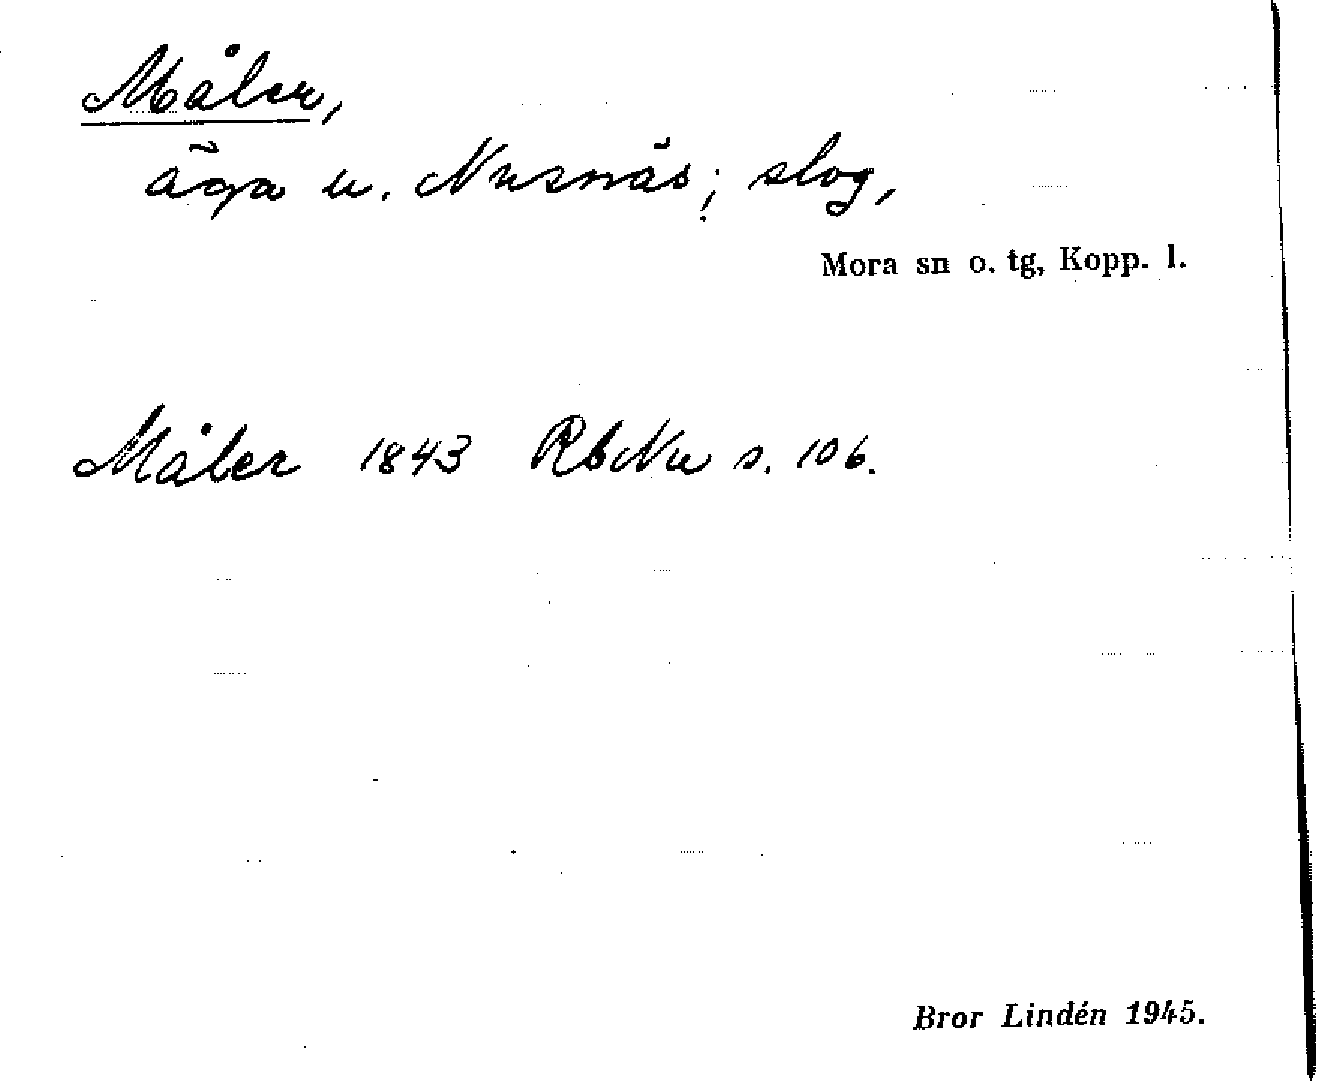 Måler,
äga u. Nusnäs; slog,
Mora sn o. tg, Kopp. l.
Måler 1843 RbNu s. 106.
Bror Lindén 1945.